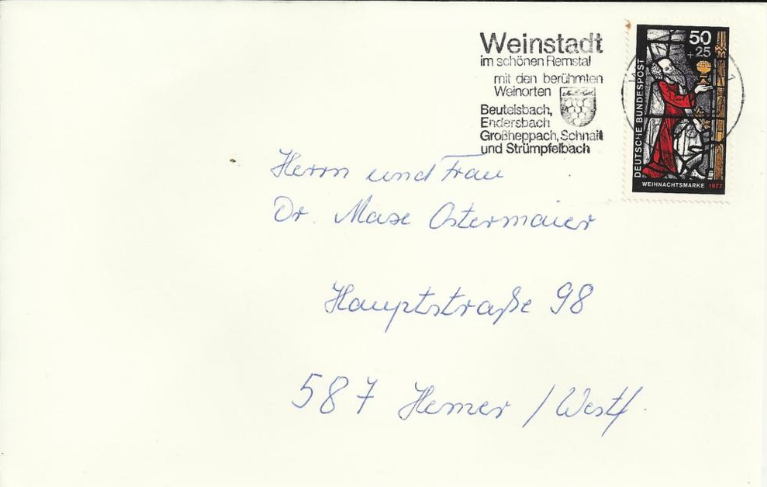 Weinstadt
im schönen Remstal
mit den berühmten
Weinorten
Beutelsbach,
Endersbach
Großheppach, Schnait
und Strümpfelbach
50
+25
DEUTSCHE BUNDESPOST
WEIHNACHTSMARKE 1977
Herrn und Frau
Dr. Max Ostermaier
Hauptstraße 98
587 Hemer / Westf.